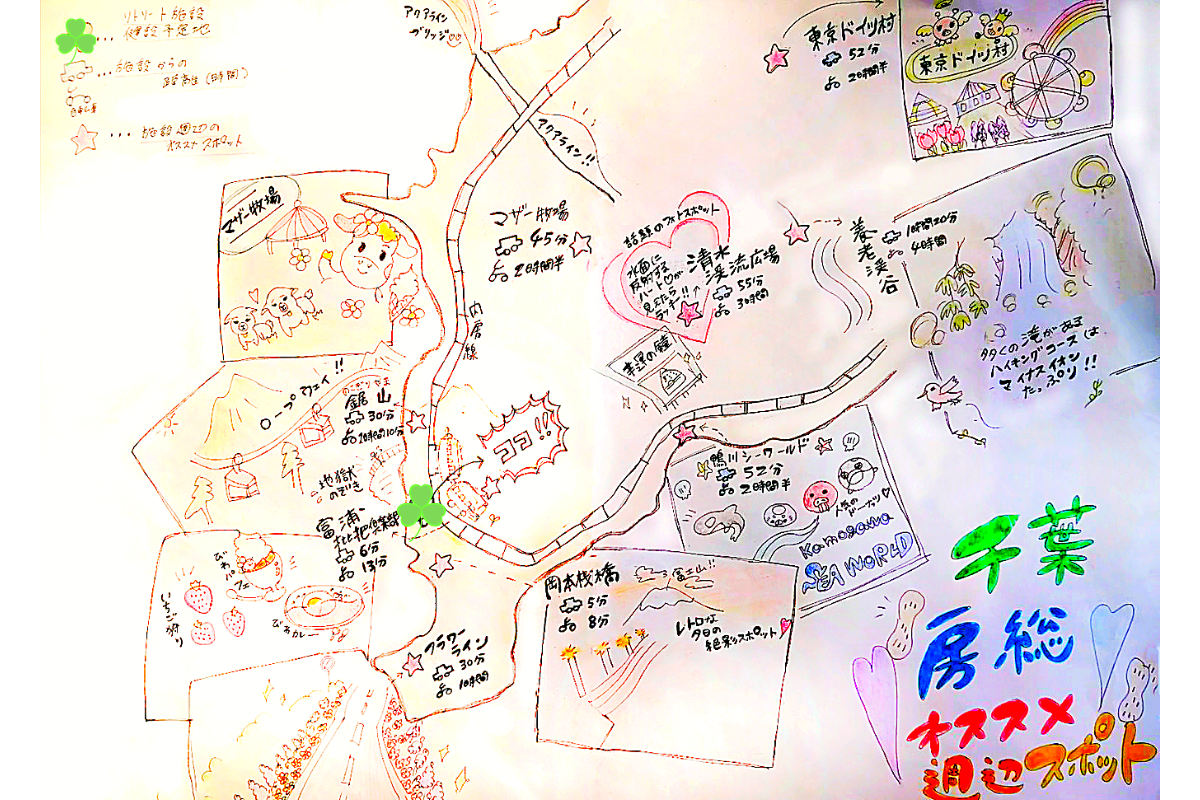 リトリート施設
建設予定地
... 施設からの
距離(時間)
自転車
... 施設周辺の
オススメスポット
アクアライン
ブリッジ
アクアライン!!
東京ドイツ村
52分
2時間半
東京ドイツ村
マザー牧場
マザー牧場
45分
2時間半
内房線
話題のフォトスポット
水面に
反射する
ハートが
見えたら
ラッキー!!
清水
渓流広場
55分
3時間
養老渓谷
1時間20分
4時間
多くの滝がある
ハイキングコースは
マイナスイオン
たっぷり!!
幸運の鐘
ロープウェイ!!
のこぎりやま
鋸山
30分
1時間10分
地獄
のぞき
ココ!!
鴨川シーワールド
52分
2時間半
人気の
ドーナツ
Kamogawa
SEA WORLD
富浦・
枇杷倶楽部
6分
13分
びわパフェ
いちご狩り
びわカレー
岡本桟橋
5分
8分
富士山!!
レトロな
夕日の
絶景スポット
フラワー
ライン
30分
1時間
千葉
房総
オススメ
週辺スポット